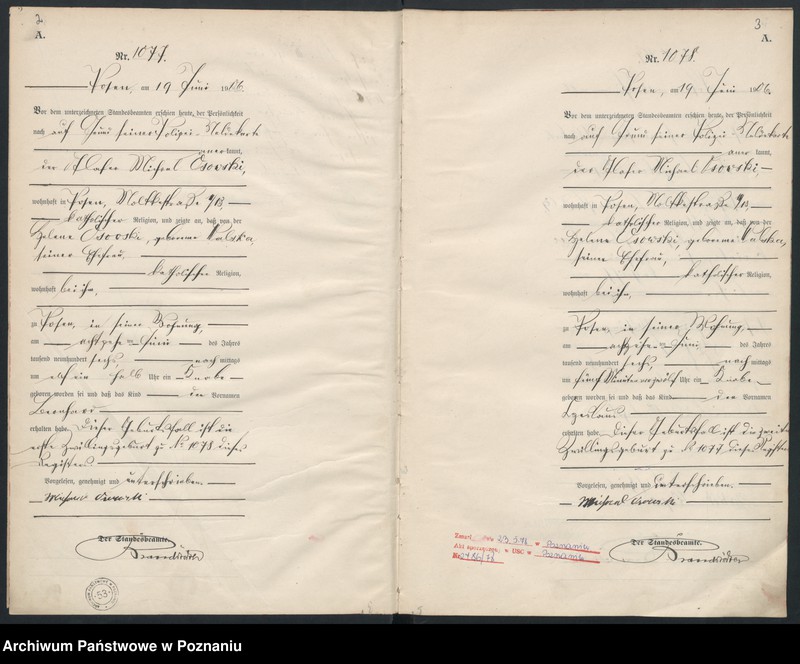 2
A.
Nr. 1077.
Posen, am 19 Juni 1906.
Vor dem unterzeichneten Standesbeamten erschien heute, der Persönlichkeit
nach auf Grund seiner Polizei-Meldekarte
anerkannt,
der Michael Osowski,
wohnhaft in Posen, Moltkestraße
katholischer Religion, und zeigte an, daß von der
Helene Osowski, geborene
seiner Ehefrau,
katholischer Religion,
wohnhaft bei ihm,
zu Posen, in seiner Wohnung,
am achtzehnten Juni des Jahres
tausend neunhundert sechs nachmittags
um elf ein halb Uhr ein Knabe
geboren worden sei und daß das Kind den Vornamen
Bernhard
erhalten habe. Dieser Geburtsfall ist die
erste Zwillingsgeburt zu No 1078 dieses
Registers.
Vorgelesen, genehmigt und unterschrieben.
Michael Osowski
Der Standesbeamte.
53
3
A.
Nr. 1078.
Posen, am 19 Juni 1906.
Vor dem unterzeichneten Standesbeamten erschien heute, der Persönlichkeit
nach auf Grund seiner Polizei Meldekarte
anerkannt,
der Michael Osowski,
wohnhaft in Posen, Moltkestraße
katholischer Religion, und zeigte an, daß von der
Helene Osowski, geborene
seiner Ehefrau,
katholischer Religion,
wohnhaft bei ihm,
zu Posen, in seiner Wohnung,
am achtzehnten Juni des Jahres
tausend neunhundert sechs, nachmittags
um fünf Minuten vor zwölf Uhr ein Knabe
geboren worden sei und daß das Kind den Vornamen
Czeslaus
erhalten habe. Dieser Geburtsfall ist die zweite
Zwillingsgeburt zu No 1077 dieses Registers
Vorgelesen, genehmigt und unterschrieben.
Michael Osowski
Der Standesbeamte.
Archiwum Państwowe w Poznaniu